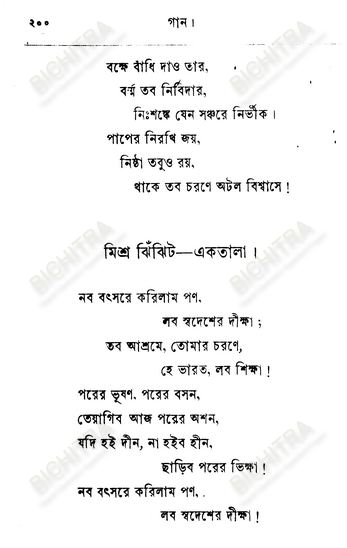 ২০০ গান।
বক্ষে বাঁধি দাও তার,
বর্ম্ম তব নির্ব্বিদার,
নিঃশঙ্কে যেন সঞ্চরে নির্ভীক।
পাপের নিরখি জয়,
নিষ্ঠা তবুও রয়,
থাকে তব চরণে অটল বিশ্বাসে!
মিশ্র ঝিঁঝিট—একতালা।
নব বৎসরে করিলাম পণ,
লব স্বদেশের দীক্ষা;
তব আশ্রমে, তোমার চরণে,
হে ভারত, লব শিক্ষা!
পরের ভূষণ, পরের বসন,
তেয়াগিব আজ পরের অশন,
যদি হই দীন, না হইব হীন,
ছাড়িব পরের ভিক্ষা!
নব বৎসরে করিলাম পণ,
লব স্বদেশের দীক্ষা!
BICHITRA